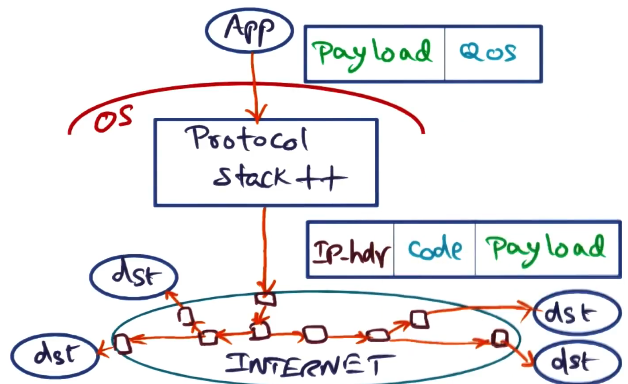 App
Payload QoS
OS
Protocol
Stack++
IP-hdr Code Payload
dst
dst
dst
dst
INTERNET